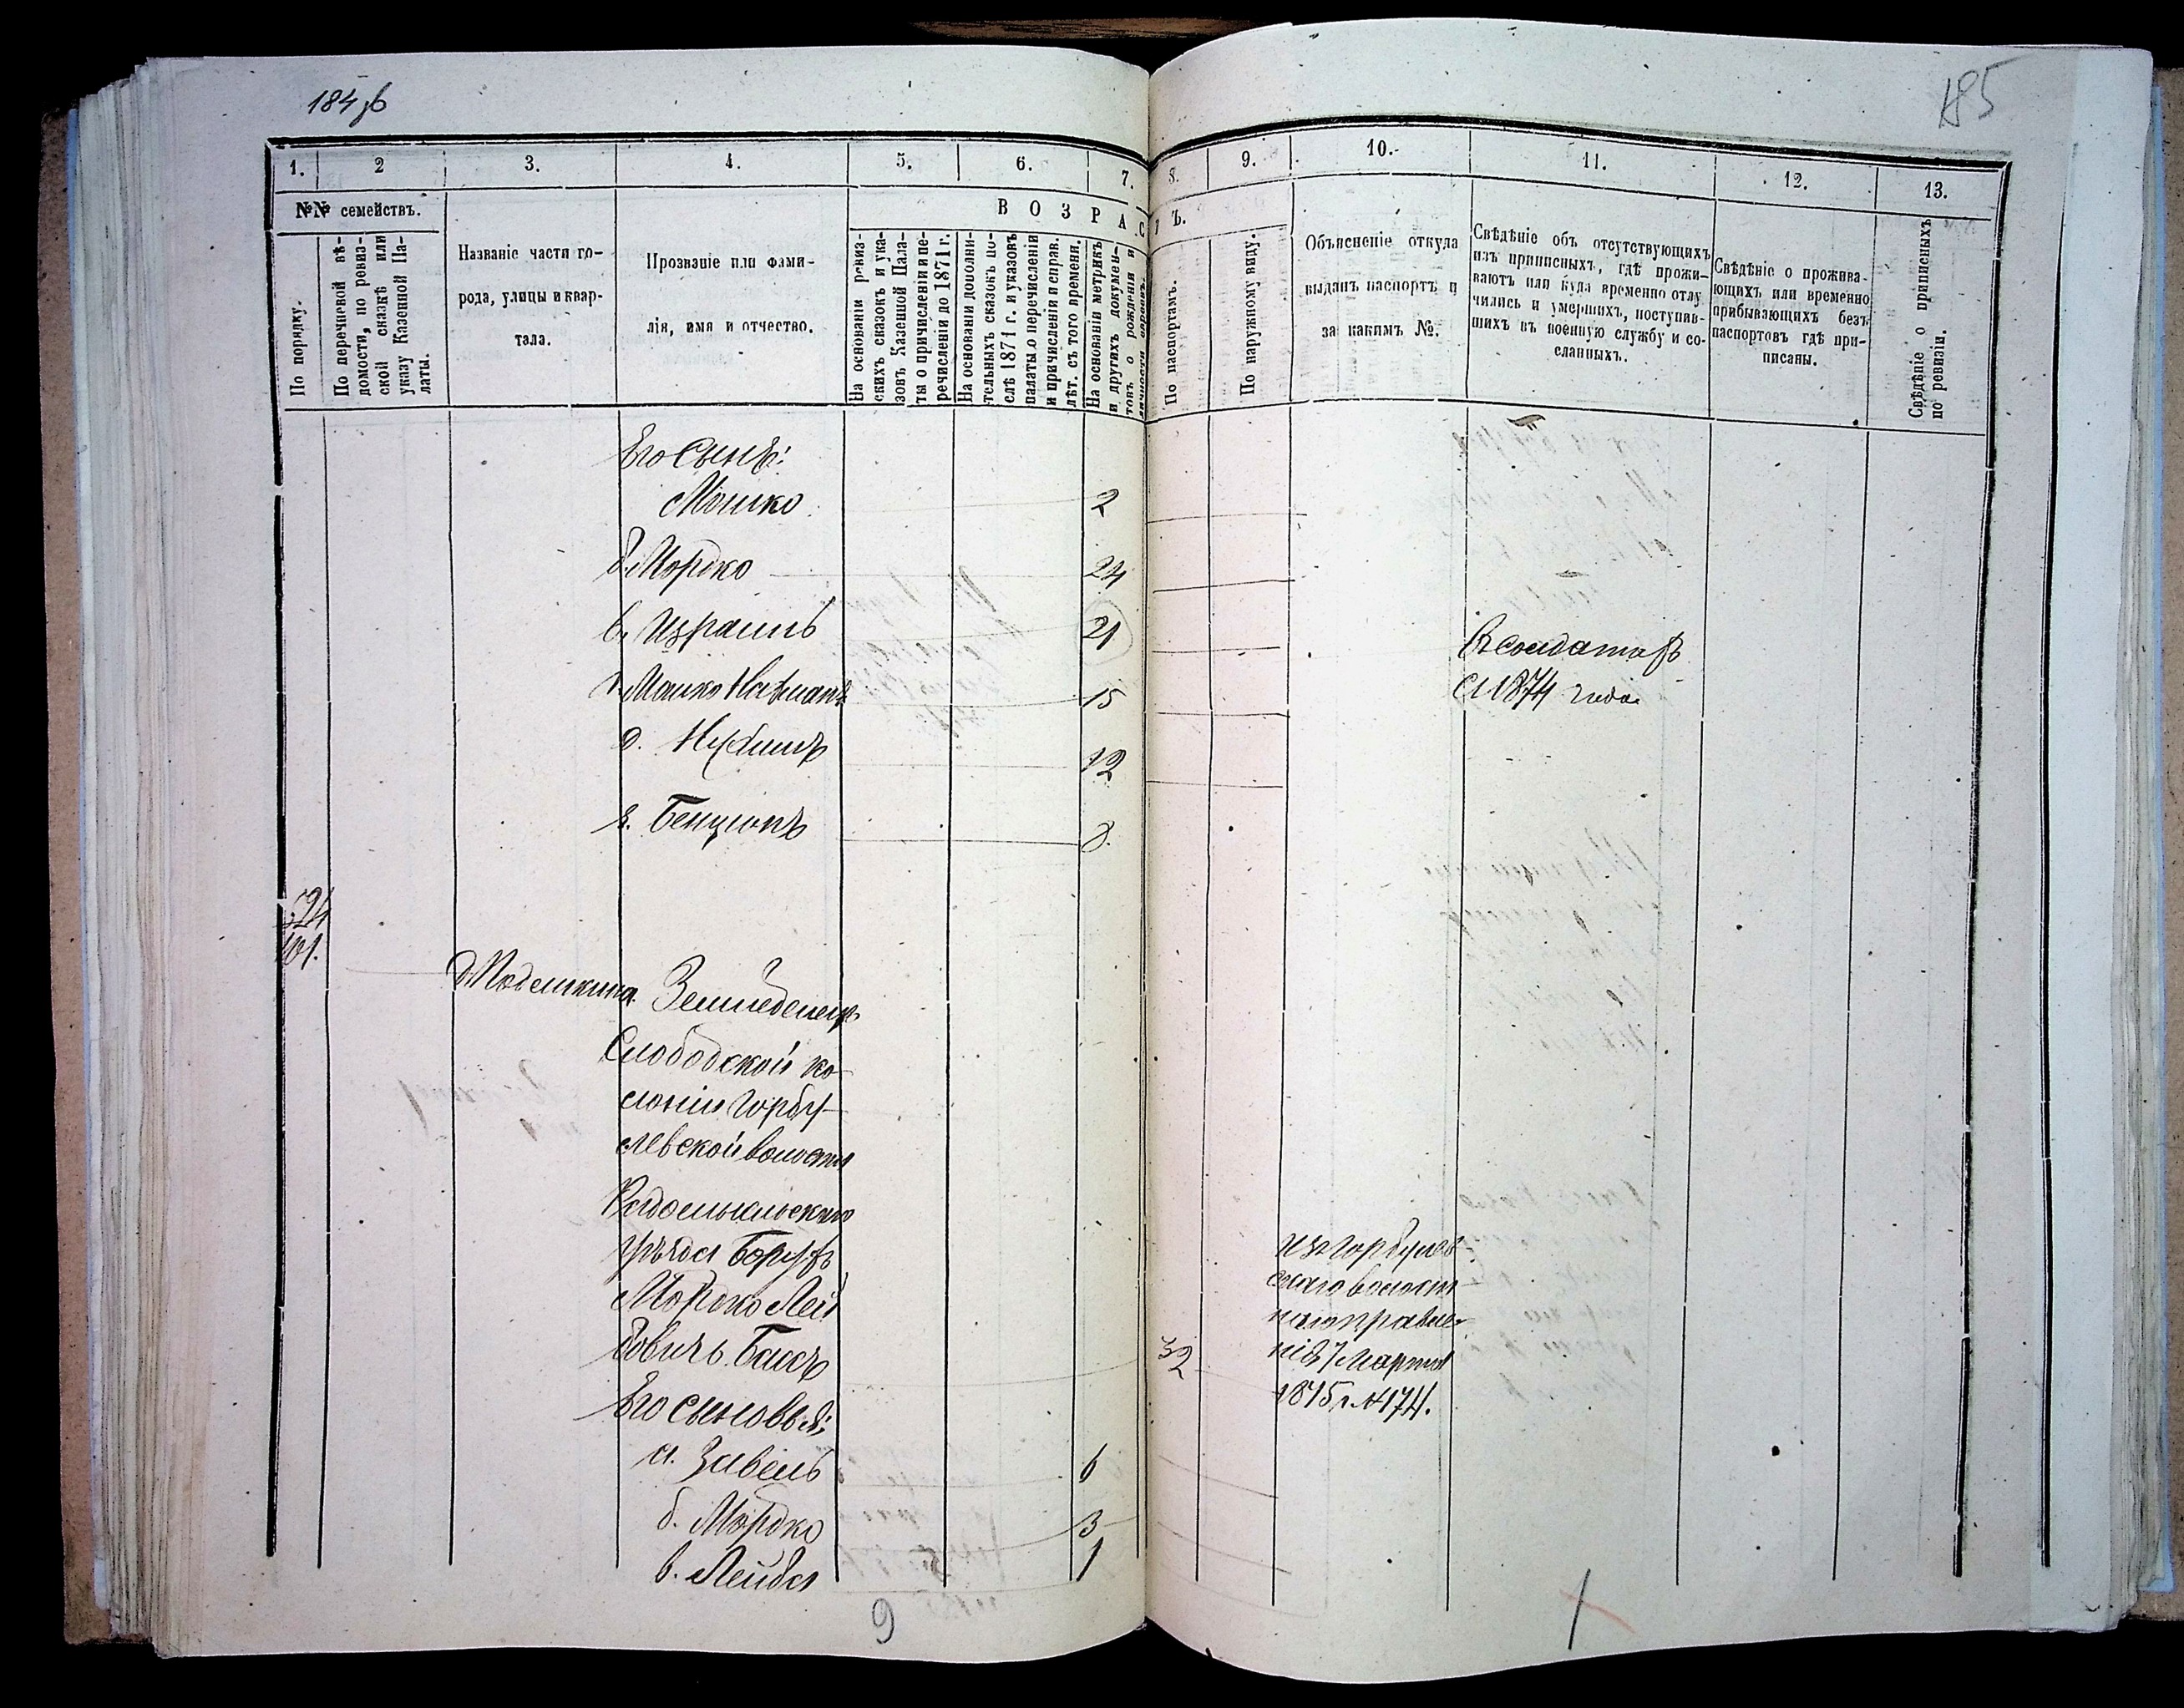 184об
185
1. 2 3. 4. 5. 6. 7. 8. 9. 10. 11. 12. 13.
№№ семействъ.
В О З Р А С Т Ъ.
По порядку.
По перечневой вѣ-
домости, по ревиз-
ской сказкѣ или
указу Казенной Па-
латы.
Названіе части го-
рода, улицы и квар-
тала.
Прозваніе или фами-
лія, имя и отчество.
На основаніи ревиз-
скихъ сказокъ и ука-
зовъ Казенной Пала-
ты о причисленіи и пе-
речисленіи до 1871 г.
На основаніи дополни-
тельныхъ сказокъ по-
слѣ 1871 г. и указовъ
палаты о перечисленіи
и причисленіи и справ.
лѣт. съ того времени.
На основаніи метрикъ
и другихъ докумен-
товъ о рожденіи и
По паспортамъ.
По наружному виду.
Объясненіе откуда
выданъ паспортъ и
за какимъ №.
Свѣдѣніе объ отсутствующихъ
изъ приписныхъ, гдѣ прожи-
ваютъ или куда временно отлу
чились и умершихъ, поступив-
шихъ въ военную службу и со-
сланныхъ.
Свѣдѣніе о прожива-
ющихъ или временно
прибывающихъ безъ
паспортовъ гдѣ при-
писаны.
Свѣдѣніе о приписныхъ
по ревизіи.
Его Сынъ:
Мошко 2
б. Мордко 24
в. Израиль 21
Въ солдатахъ
съ 1874 года
г. Мошко Нахманъ 15
д. 12
е. Бенціонъ 8.
101.
Земледелецъ
Слободской ко-
лоніи Горбу-
левской волости
Радомысльскаго
уѣзда Борухъ
Мордко Лей
бовичъ Басъ 32
изъ Горбулев-
скаго волост-
наго правле-
нія 7 Марта
1875 г. №174.
Его сыновья:
а. Завель 6
б. Мордко 3
в. Лейба 1
9